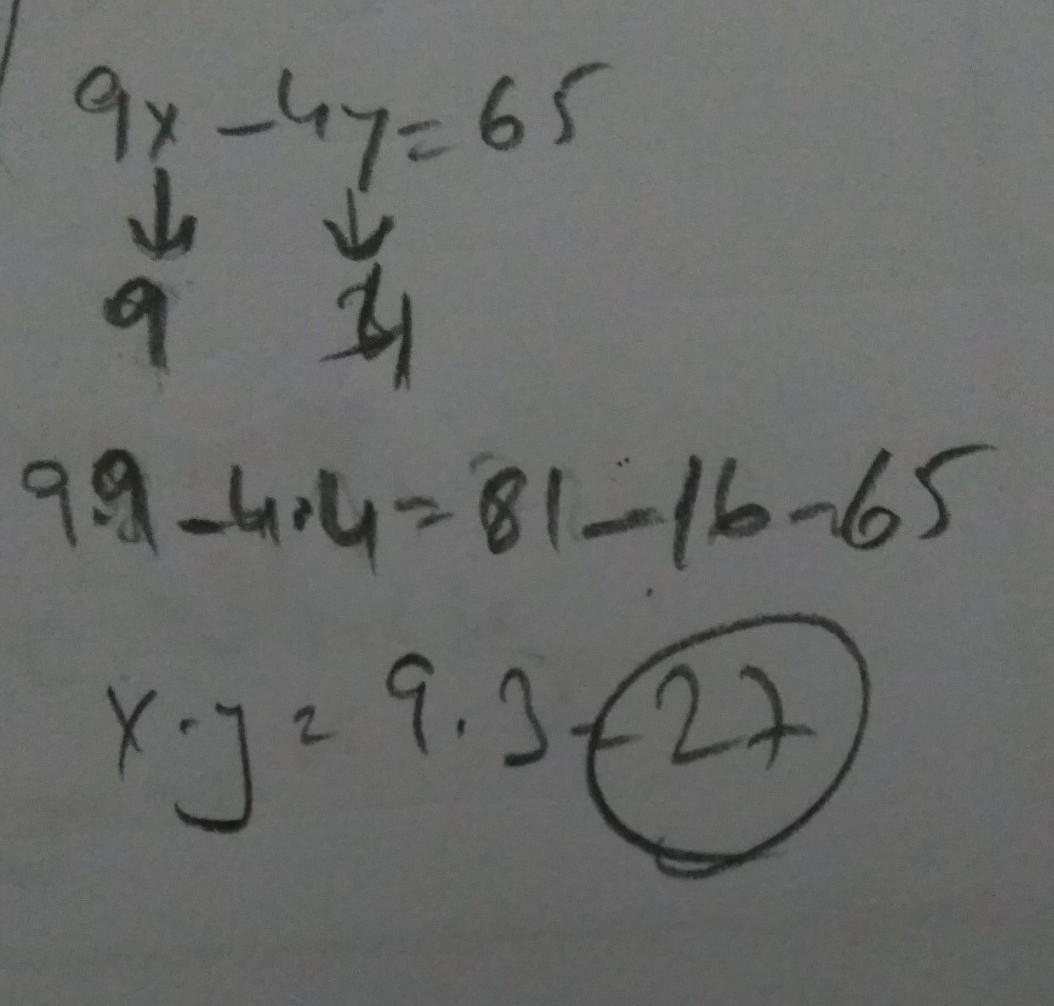 9x - 4y = 65
↓ ↓
9 4
9.9 - 4.4 = 81 - 16 = 65
x.y = 9.3 = 27